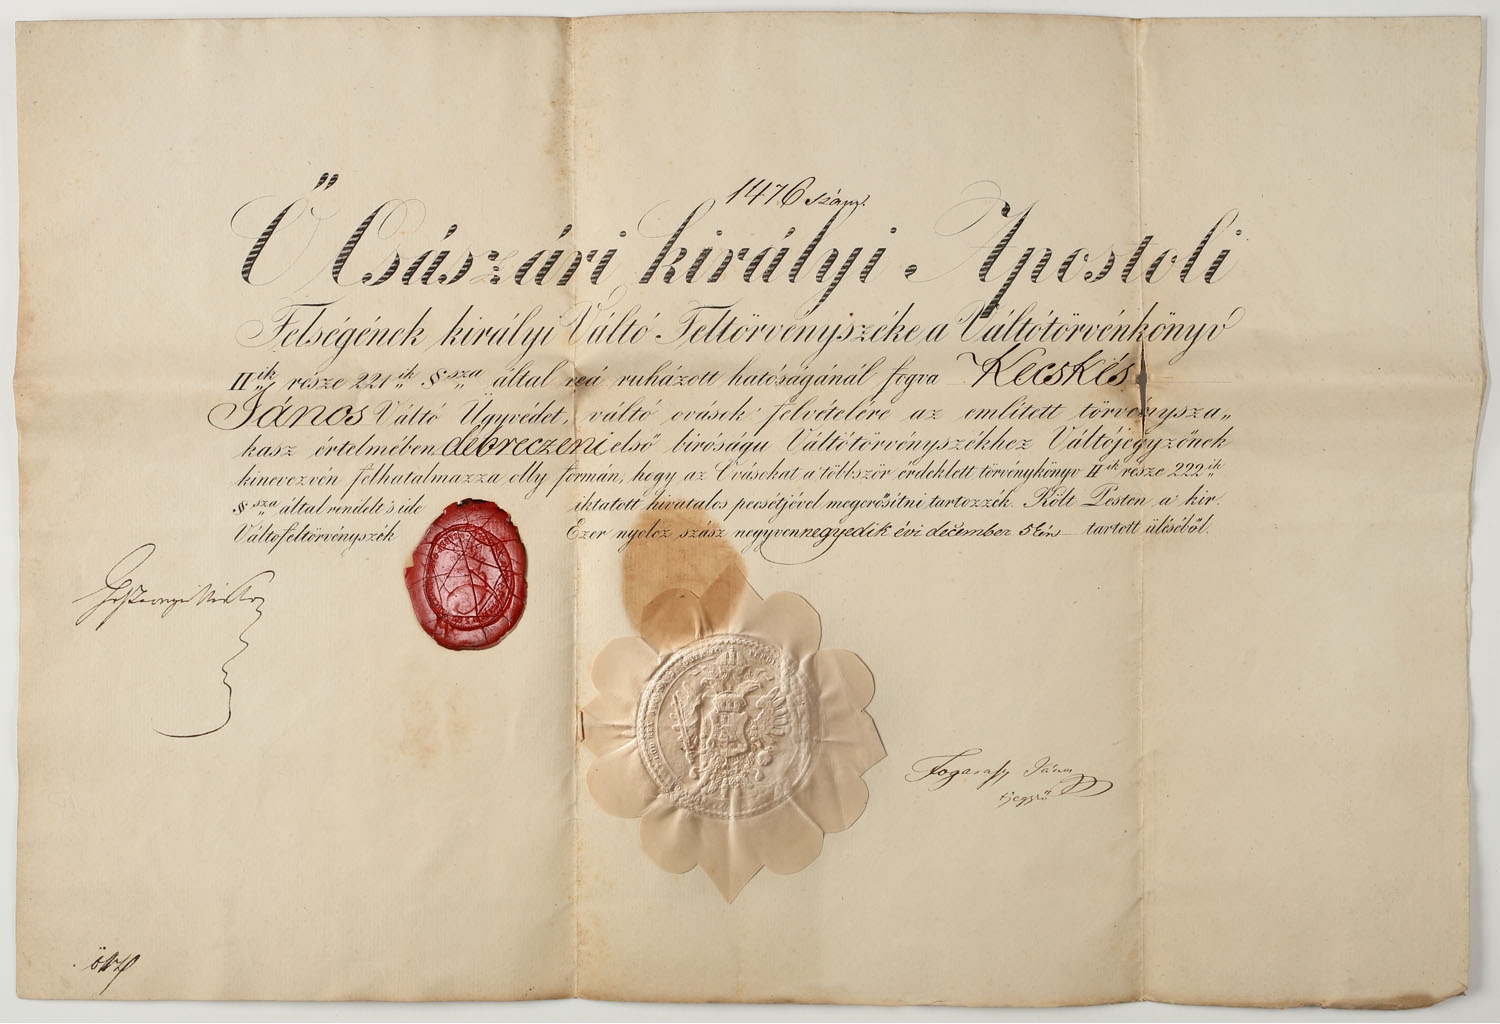 1476 szám.
Ő Császári királyi Apostoli
Felségének királyi Váltó Feltörvényszéke a Váltótörvénkönyv
IIik része 221ik §sza által reá ruházott hatóságánál fogva Kecskés
János Váltó Ügyvédet, váltó ovások felvételére az emlitett törvénysza„
kasz értelmében debreczeni első biróságu Váltótörvényszékhez Váltójegyzőnek
kinevezvén felhatalmazza olly formán, hogy az Ovásokat a többször érdeklett törvénykönyv IIik része 222ik
§sza által rendelt 's ide iktatott hivatalos pecsétjével megerősitni tartozzék. Költ Pesten a' kir.
Váltófeltörvényszék Ezer nyolcz száz negyvennegyedik évi december 5kén tartott üléséből.
Fogarasy János
tjegyző